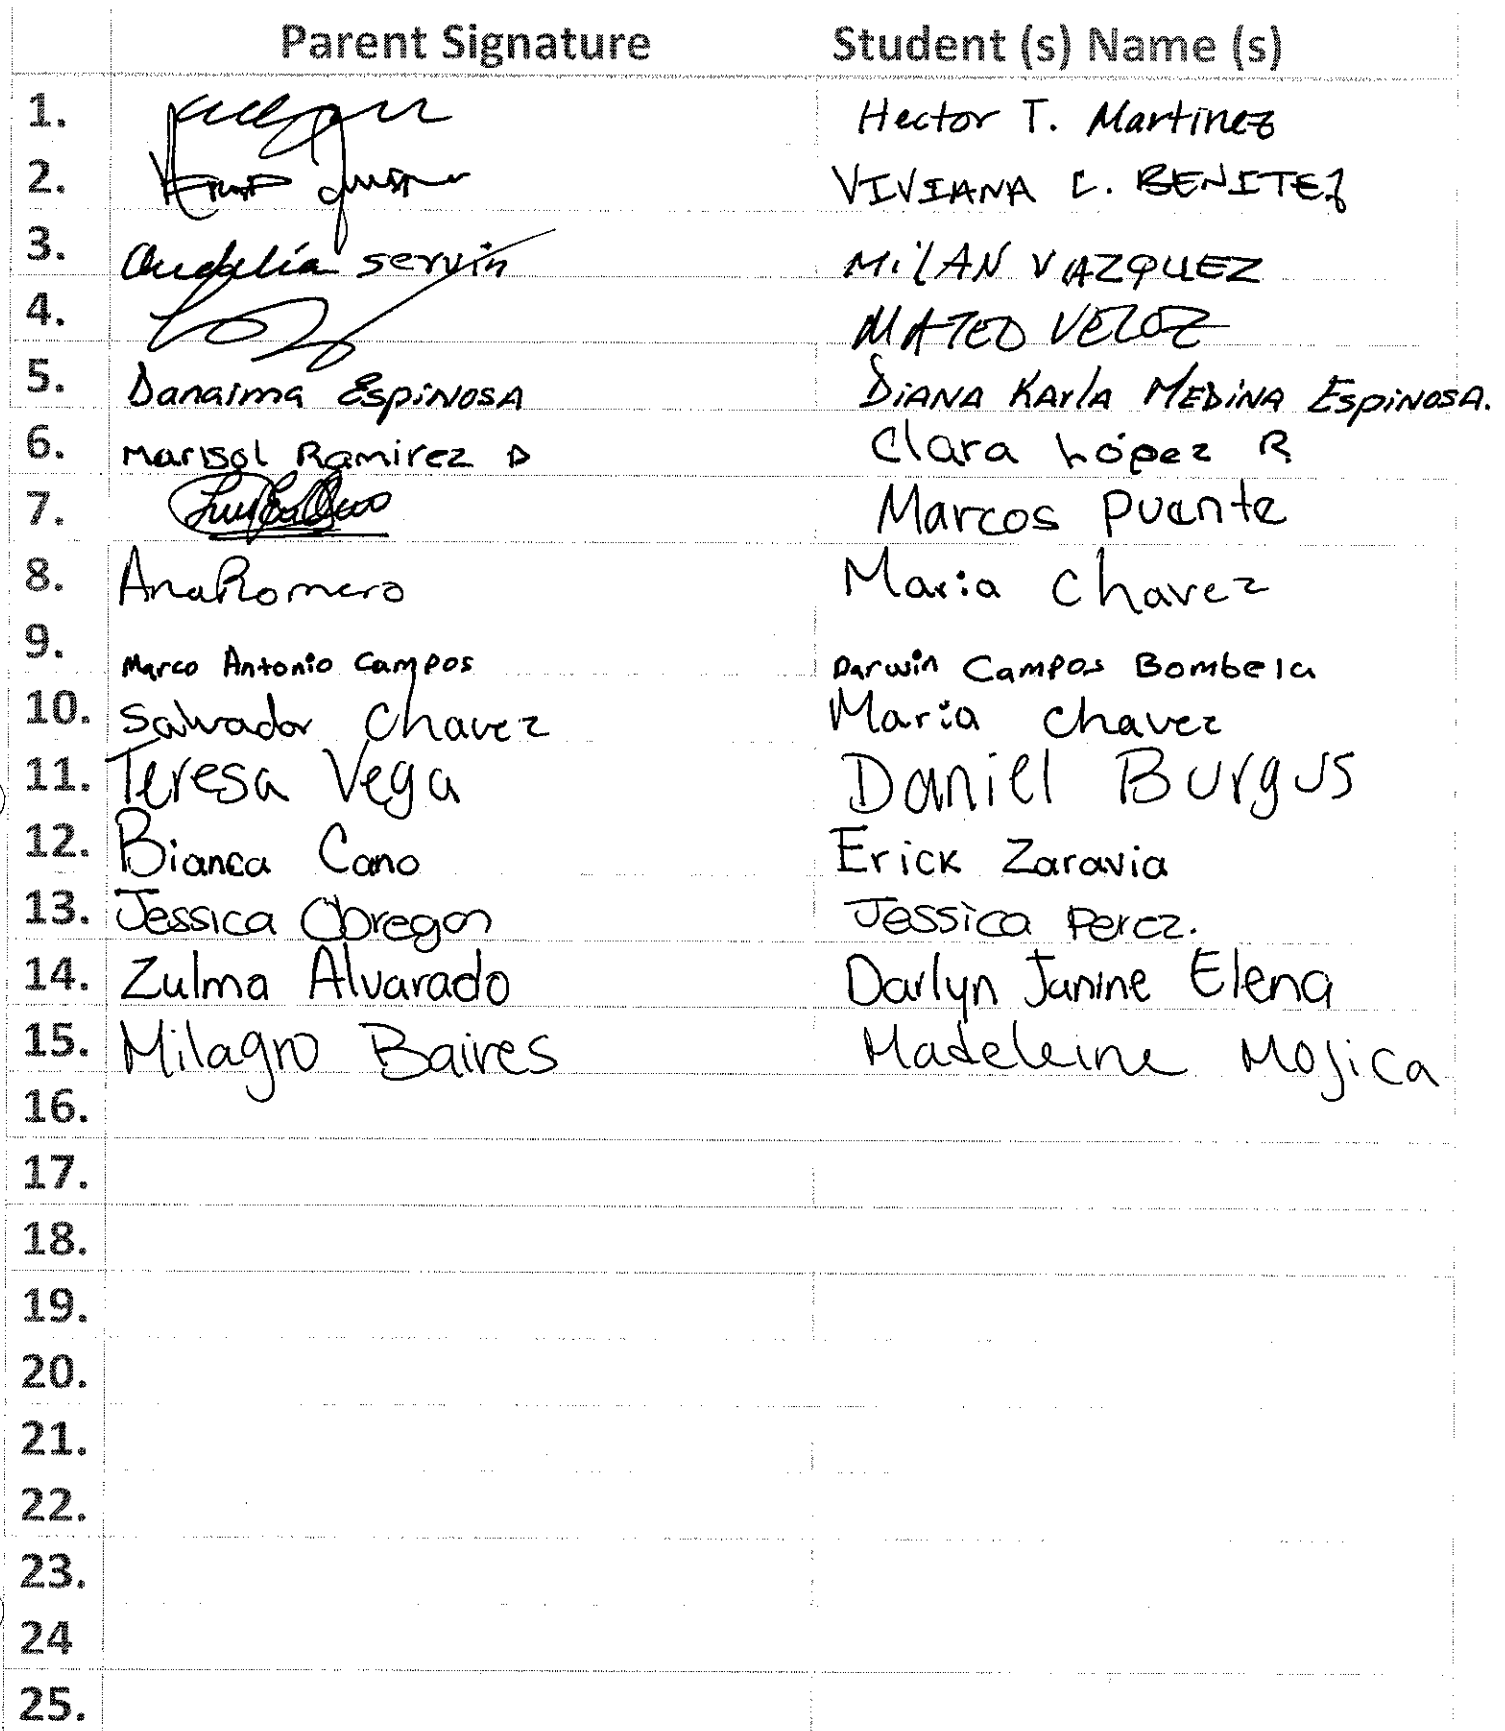 Parent Signature Student (s) Name (s)
1. Hector T. Martinez
2. VIVIANA C. BENITEZ
3. Audelía servín MilAN VAZQUEZ
4. MATEO VELOZ
5. Danaima EspiNosA DiANA KArlA MEDiNA EspiNosA.
6. Marisol Ramirez D Clara López R
7. Marcos Puente
8. Ana Romero Maria Chavez
9. Marco Antonio Campos Darwin Campos Bombela
10. Salvador Chavez Maria Chavez
11. Teresa Vega Daniel Burgus
12. Bianca Cano Erick Zaravia
13. Jessica Obregon Jessica Perez.
14. Zulma Alvarado Darlyn Janine Elena
15. Milagro Baires Madeleine Mojica
16.
17.
18.
19.
20.
21.
22.
23.
24
25.